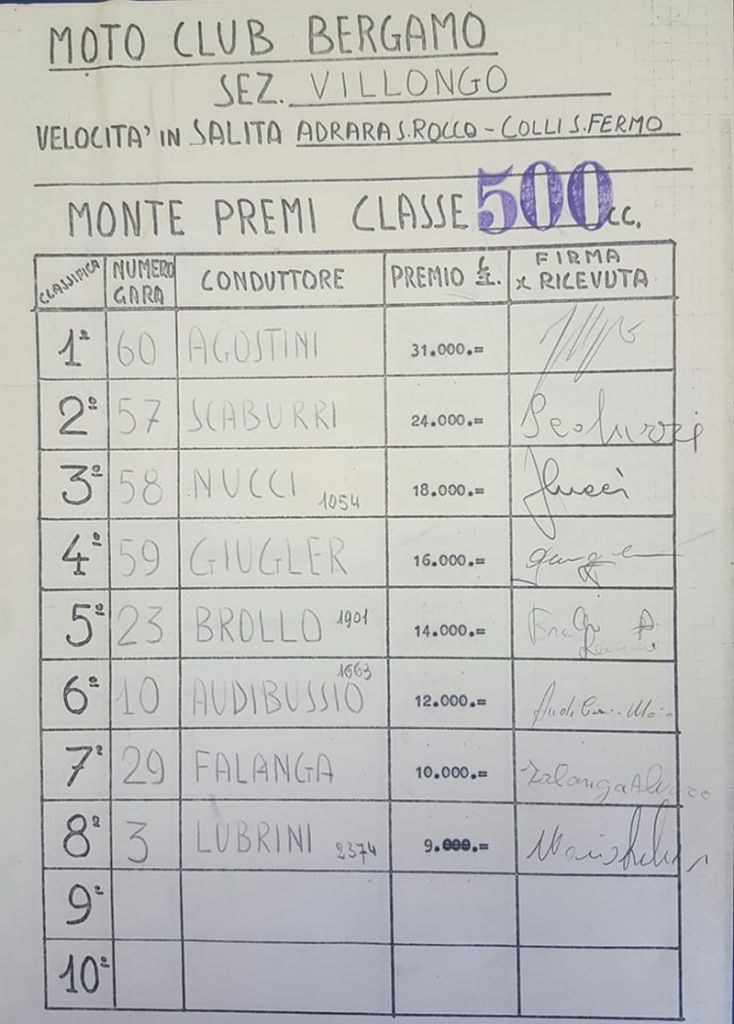 MOTO CLUB BERGAMO
SEZ. VILLONGO
VELOCITA' IN SALITA ADRARA S. ROCCO - COLLI S. FERMO
MONTE PREMI CLASSE 500 cc.
CLASSIFICA NUMERO GARA CONDUTTORE PREMIO £. FIRMA x RICEVUTA
1ª 60 AGOSTINI 31.000.=
2ª 57 SCABURRI 24.000.= Scaburri
3ª 58 NUCCI 1054 18.000.= Nucci
4ª 59 GIUGLER 16.000.=
5ª 23 BROLLO 1901 14.000.=
6ª 10 AUDIBUSSIO 1663 12.000.=
7ª 29 FALANGA 10.000.= Falanga
8ª 3 LUBRINI 2374 9.000.=
9ª
10ª